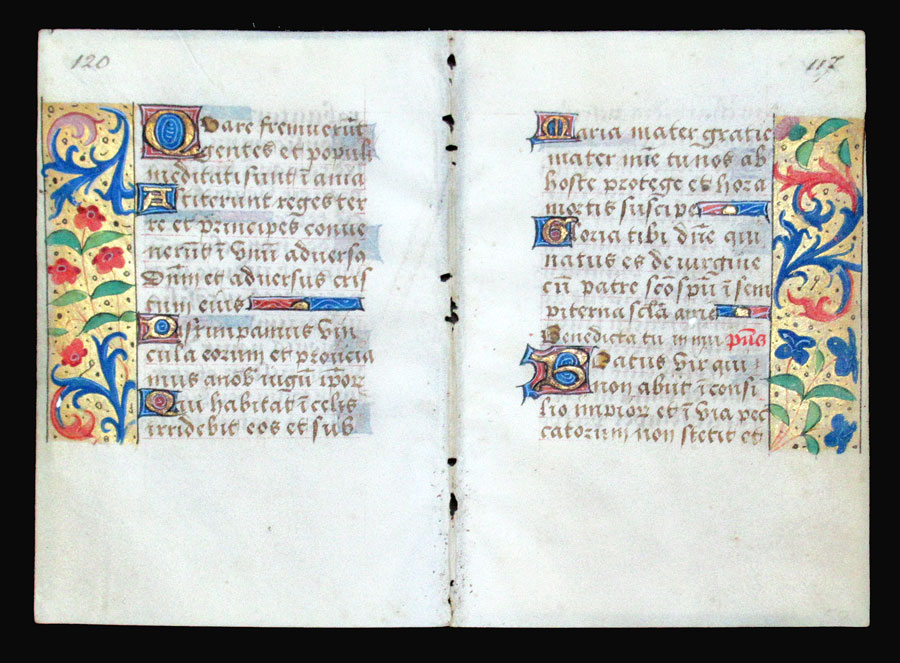 120
Quare fremuerūt
gentes et popul
meditati sunt ī ania
Astiterunt reges ter
re et prīcipēs conve
nerūt ī vnū adverso
Dnm̄ et adversus cris
tum eius
Disrumpamus vin
cula eorum et proiicia
mus a nob iugū ipor
Qui habitat ī celis
irridebit eos et sub
117
Maria mater gratie
mater mīe tu nos ab
hoste protege et hora
mortis suscipe
Gloria tibi dn̄e qui
natus es de virgine
cū patre scō spū ī sem
piterna sclā ame
Benedicta tu in mu p̄us
Beatus vir qui
non abiit ī consi
lio impior et ī via pec
catorum non stetit et